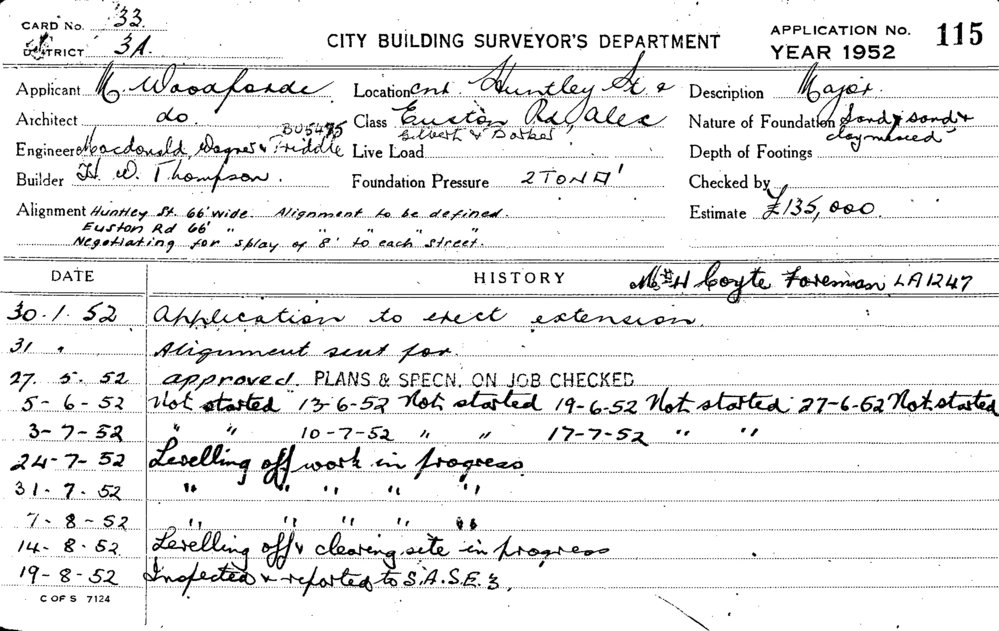 CARD No. 33.
DISTRICT 3A.
CITY BUILDING SURVEYOR'S DEPARTMENT
APPLICATION No. 115
YEAR 1952
Applicant M. Woodforde
Location Cnr. Huntley St. &
Description Major.
Architect do.
Class Euston Rd, Alex
Gilbert & Barker
Nature of Foundation Sand, sand &
clay mixed
BU5485
Engineer Macdonald, Wagner & Priddle
Live Load
Depth of Footings
Builder H. W. Thompson.
Foundation Pressure 2 TON □'
Checked by
Alignment Huntley St. 66' wide. Alignment to be defined.
Estimate £135,000.
Euston Rd 66' " " " " "
Negotiating for splay of 8' to each street.
DATE HISTORY Mr H Coyte Foreman LA1247
30.1.52 Application to erect extension.
31 " Alignment sent for.
27. 5. 52 approved. PLANS & SPECN. ON JOB CHECKED
5-6-52 Not started 13-6-52 Not started 19-6-52 Not started 27-6-52 Not started
3-7-52 " " 10-7-52 " " 17-7-52 " "
24-7-52 Levelling off work in progress
31-7.52 " " " " "
7-8-52 " " " " "
14-8.52. Levelling off & clearing site in progress
19-8-52 Inspected & reported to S.A.S.E.3.
C OF S 7124